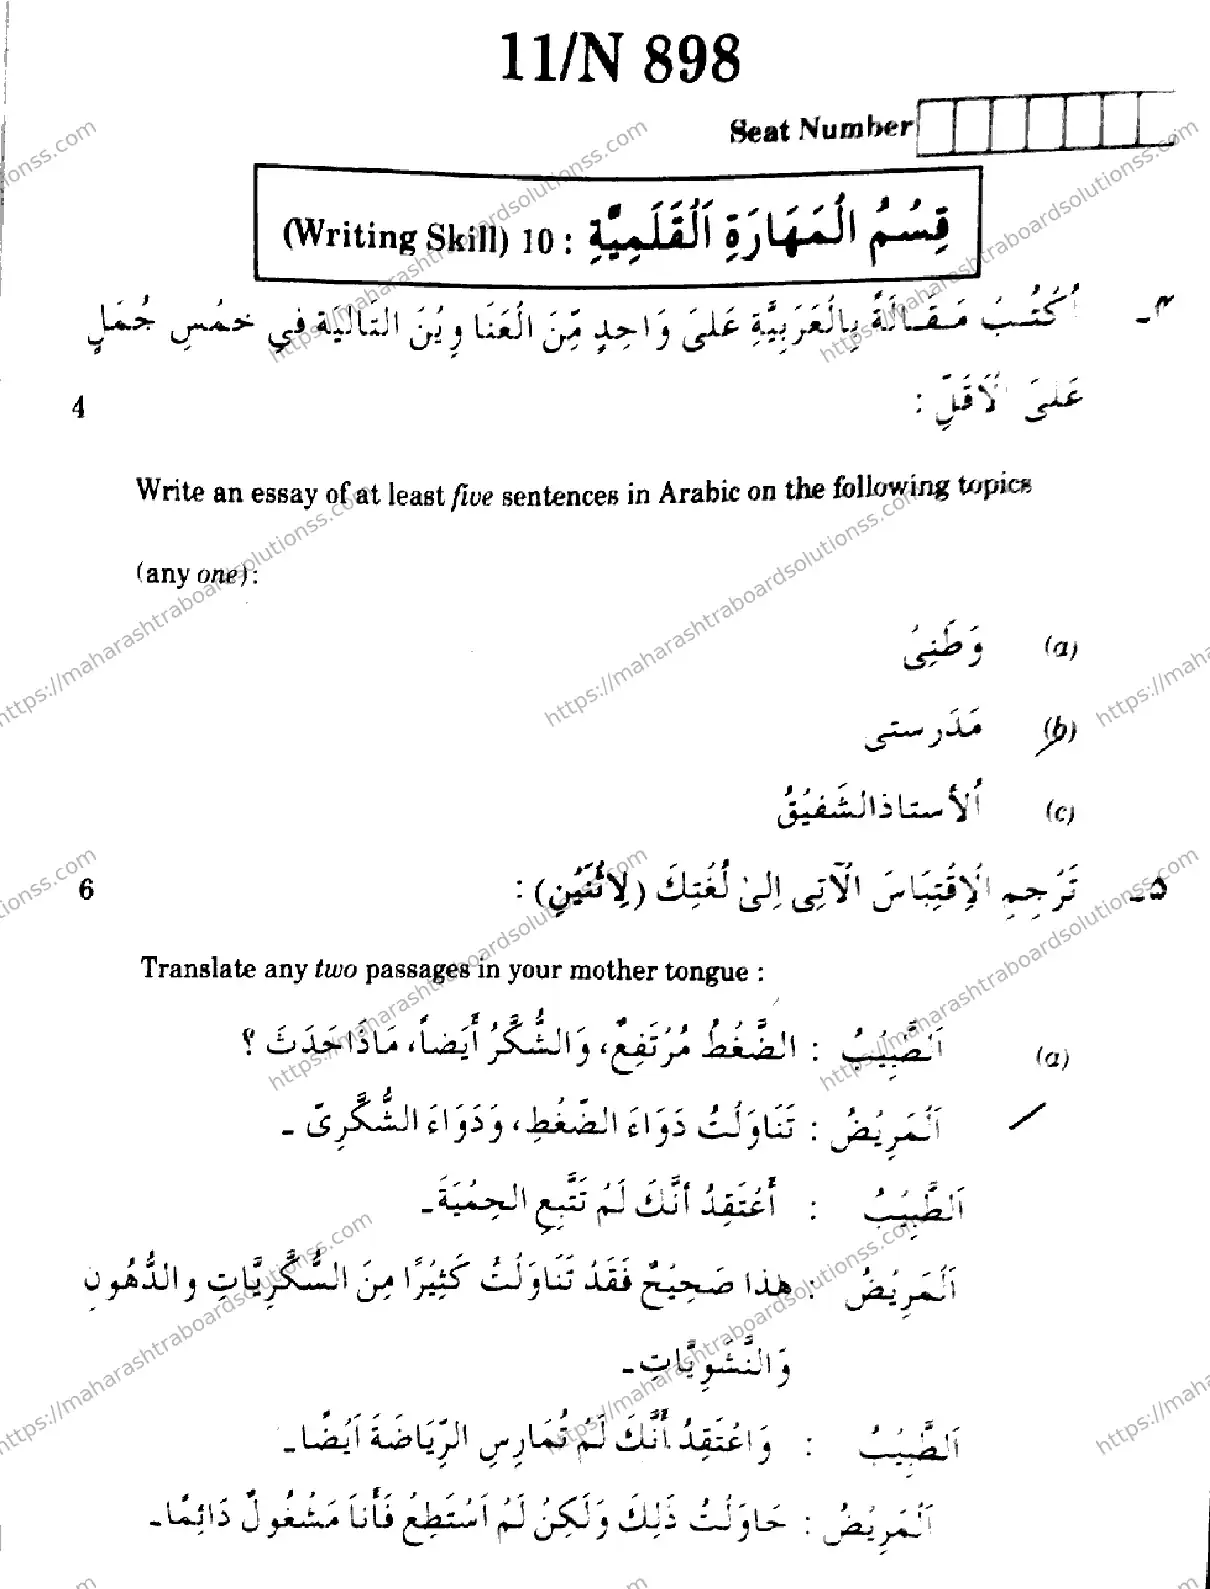 11/N 898
Seat Number
قِسْمُ الْمَهَارَةِ اَلْقَلَمِيَّةِ : 10 (Writing Skill)
۴ـ اُكْتُبْ مَقَالَةً بِالْعَرَبِيَّةِ عَلىَ وَاحِدٍ مِّنَ الْعَنَا وِيْنَ التَّالِيَةِ فِي خَمْسِ جُمَلٍ
عَلىَ الْاَقَلِّ : 4
Write an essay of at least five sentences in Arabic on the following topics
(any one):
(a) وَطَنِىْ
(b) مَدَرستى
(c) اَلأستاذالشَفِيْقُ
۵ـ تَرْجِمِ الْاِقْتِبَاسَ الْآتِى اِلىٰ لُغَتِكَ (لِاثْنَيْنِ) : 6
Translate any two passages in your mother tongue :
(a) اَلطَّبِيْبُ : الضَّغْطُ مُرْتَفِعٌ، وَالشُّكَّرُ أَيْضاً، مَاذَا حَدَثَ ؟
اَلْمَرِيْضُ : تَنَاوَلْتُ دَوَاءَ الضَّغْطِ، وَدَوَاءَ الشُّكَّرِىّ ـ
اَلطَّبِيْبُ : أَعْتَقِدُ أنَّكَ لَمْ تَتَّبِعِ الْحِمْيَةَ ـ
اَلْمَرِيْضُ : هٰذا صَحِيْحٌ فَقَدْ تَنَاوَلْتُ كَثِيْرًا مِنَ السُّكَّرِيَّاتِ والدُّهُونِ
وَالنَّشْوِيَّاتِ ـ
اَلطَّبِيْبُ : وَاعْتَقِدُ أَنَّكَ لَمْ تُمَارِسِ الرِّيَاضَةَ اَيْضًا ـ
اَلْمَرِيْضُ : حَاوَلْتُ ذٰلِكَ وَلٰكِنْ لَمْ اَسْتَطِعْ فَأَناَ مَشْغُولٌ دَائِمًا ـ
https://maharashtraboardsolutionss.com